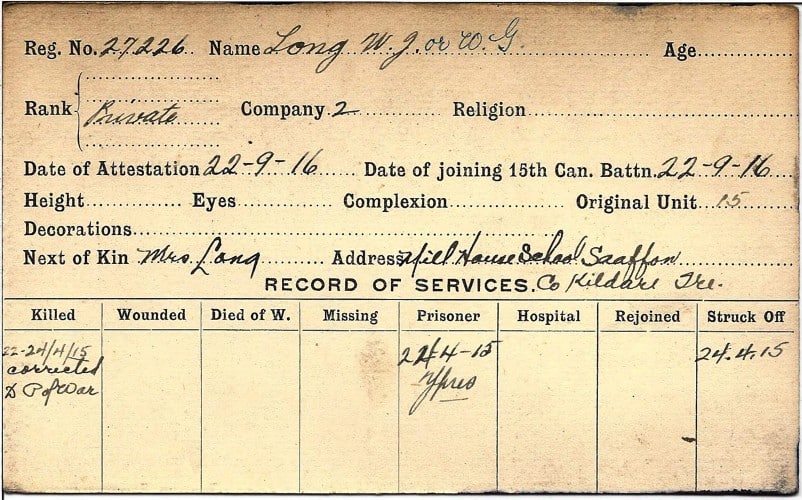 Reg. No. 27226 Name Long W. J. or W. G. Age
Rank Private Company 2 Religion
Date of Attestation 22-9-16 Date of joining 15th Can. Battn. 22-9-16
Height Eyes Complexion Original Unit 15
Decorations
Next of Kin Mrs. Long Address Mill House School
RECORD OF SERVICES. Co Kildare Ire.
Killed Wounded Died of W. Missing Prisoner Hospital Rejoined Struck Off
22-24/4/15 4-15 24.4.15
corrected Ypres
P of War